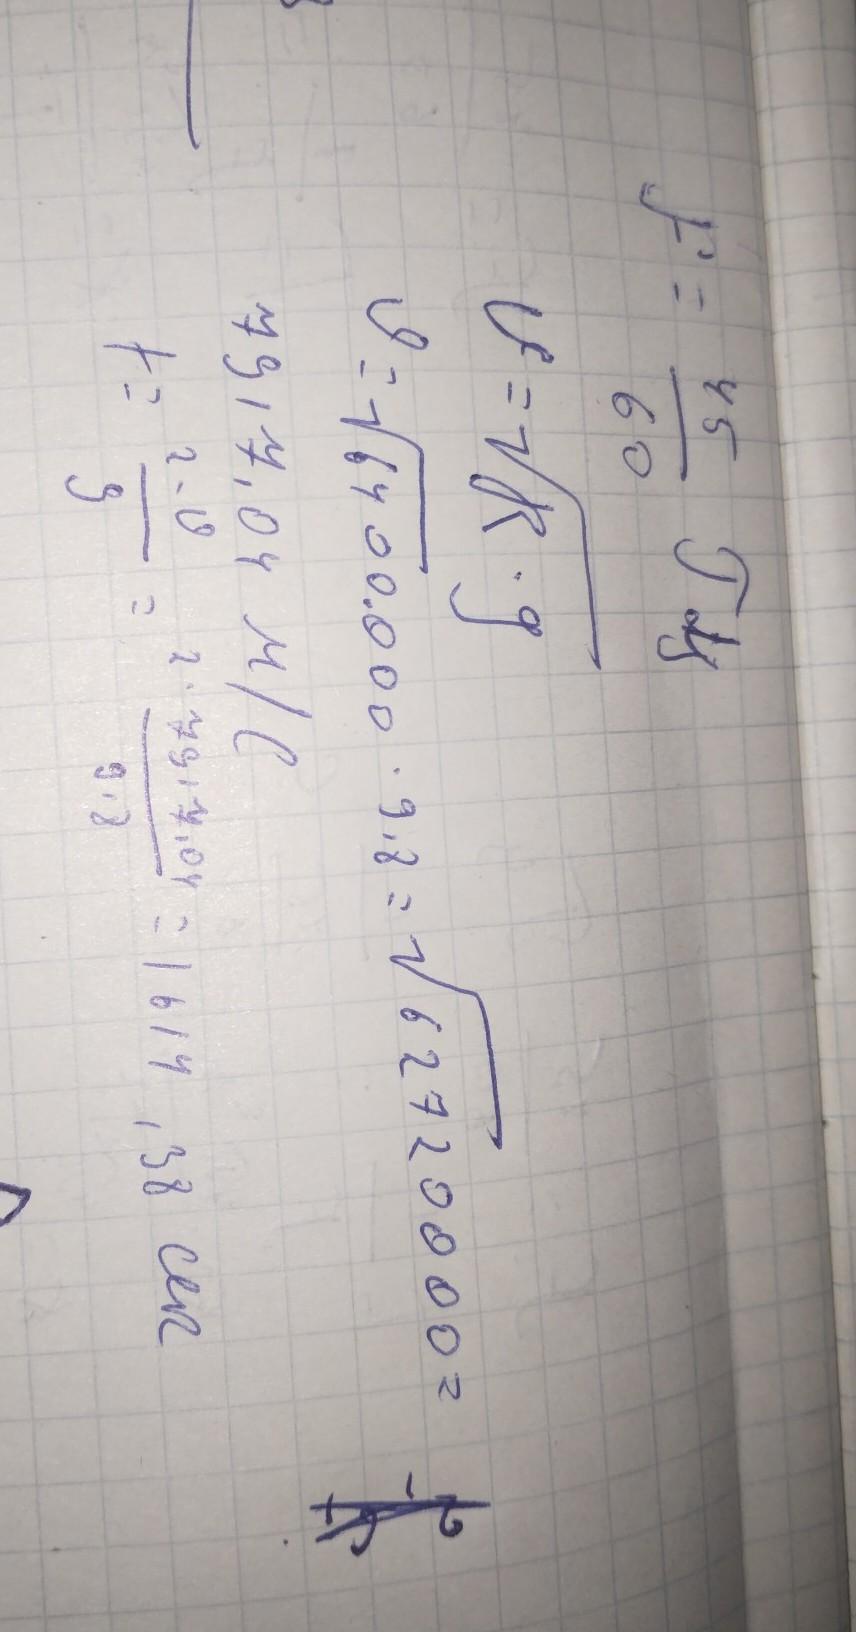 𝜈 = 45/60 Гц
𝜗 = √R · g
𝜗 = √6400.000 · 9.8 = √62720000 =
7917.04 м/с
t = 2·𝜗/g = 2·7917.04/9.8 = 1614,38 сек